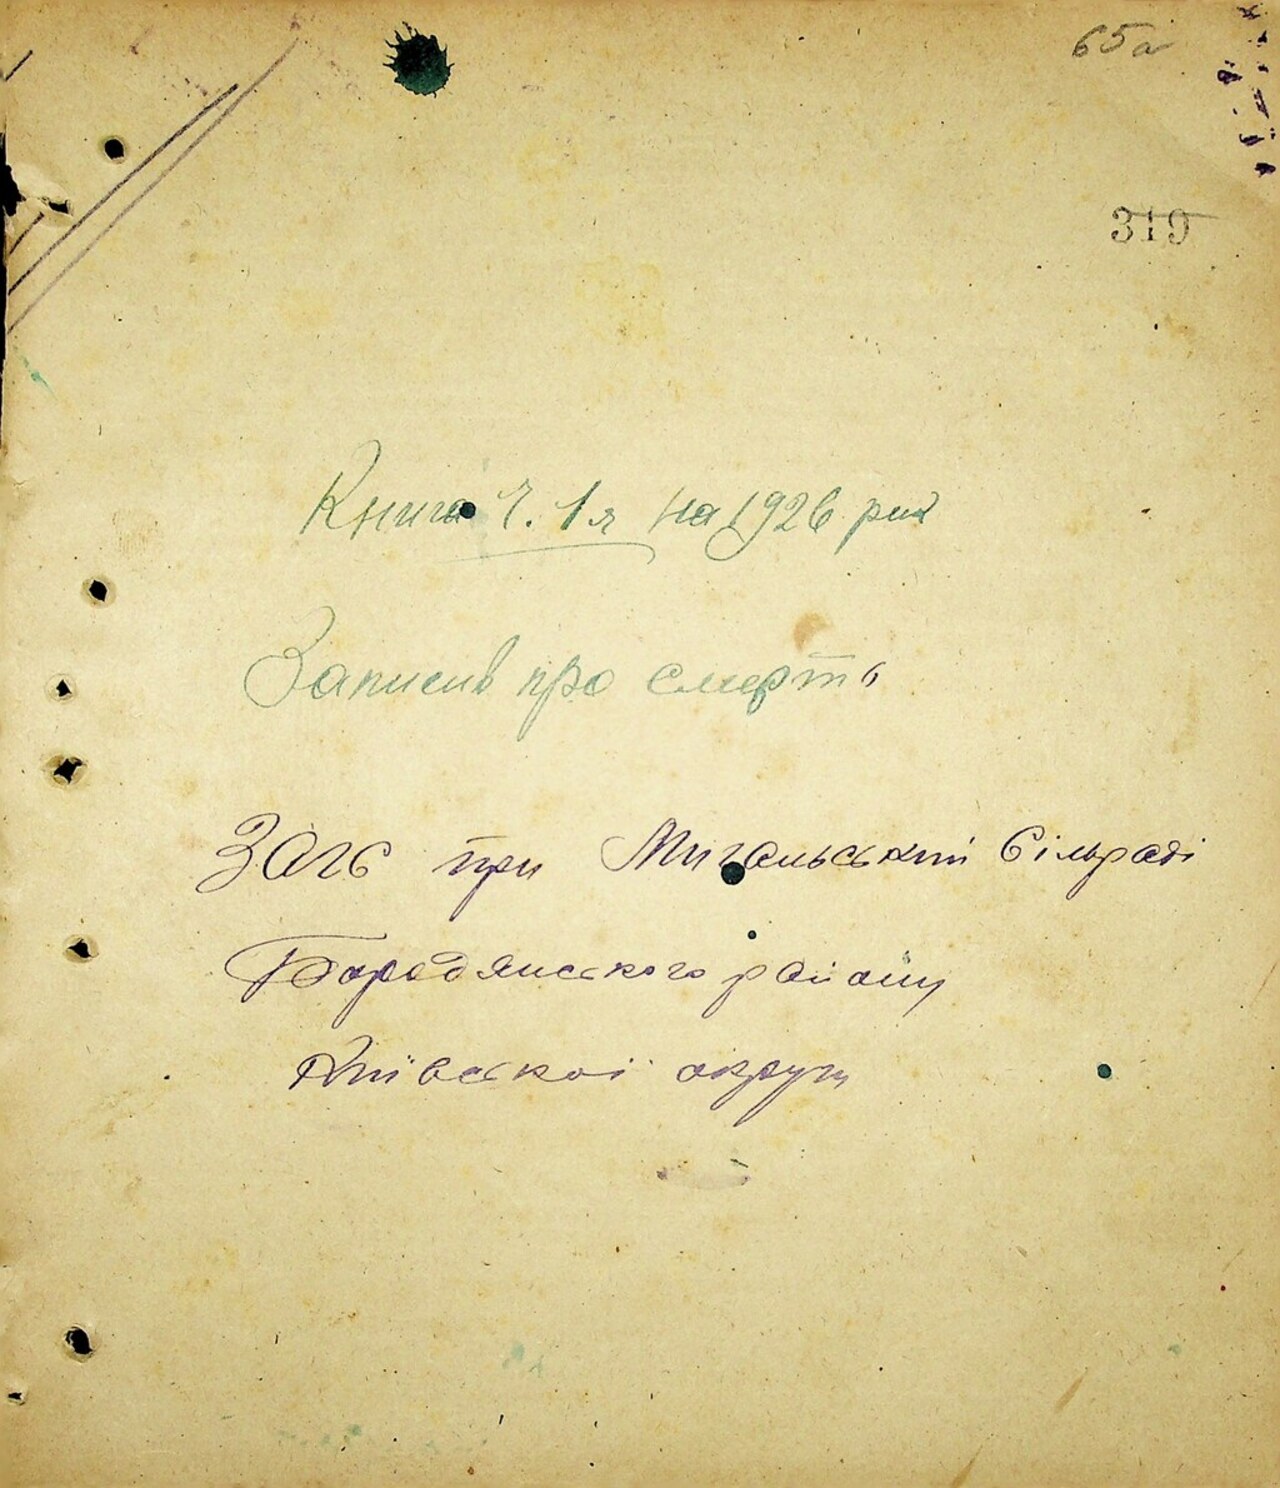 65а
319
Книга Ч. 1я на 1926 рик
Записив про смерть
ЗАГС при Мигальський Сільраді
Бородянського району
Київської округи